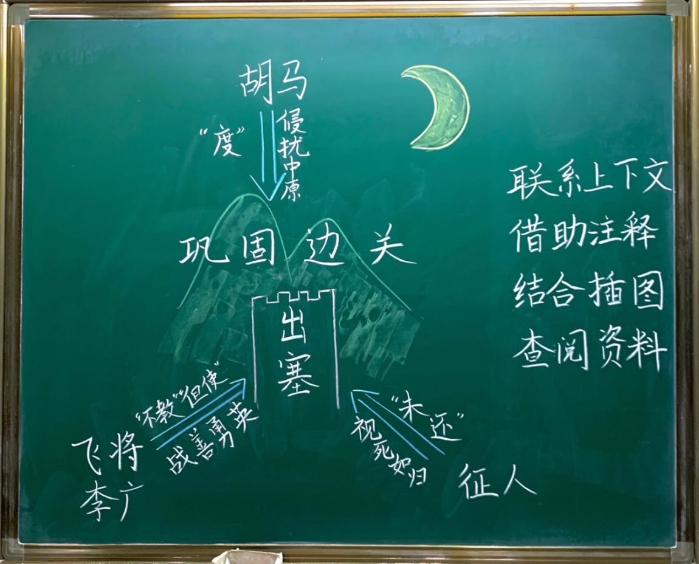 胡马
“度”
侵扰中原
巩固边关
出塞
“不教”“但使”
战善勇英
飞将
李广
“未还”
视死如归
征人
联系上下文
借助注释
结合插图
查阅资料